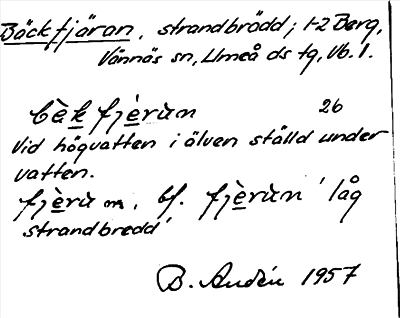 Bäckfjäran, strandbrädd; 1-2 Berg,
Vännäs sn, Umeå ds tg, Vb. 1.
bèkfjèrùn 26
Vid högvatten i älven ställd under
vatten.
fjèrù m, bf. fjèrùn 'låg
strandbredd'
B. Audén 1957